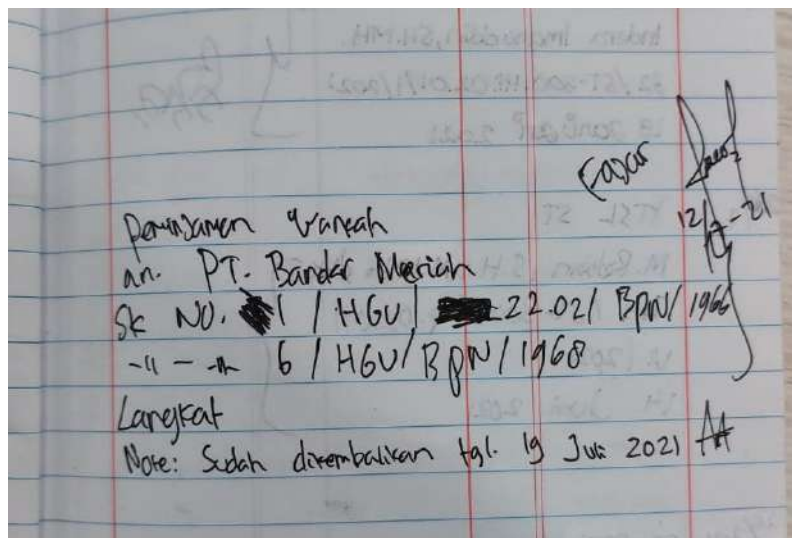 Fajar
12/7-21
Peminjaman Warkah
an. PT. Bandar Meriah
SK NO. 1 / HGU / 22.02/ BPN/ 1966
-"- - -"- 6 / HGU/ BPN / 1968
Langkat
Note: Sudah dikembalikan tgl. 19 Juli 2021